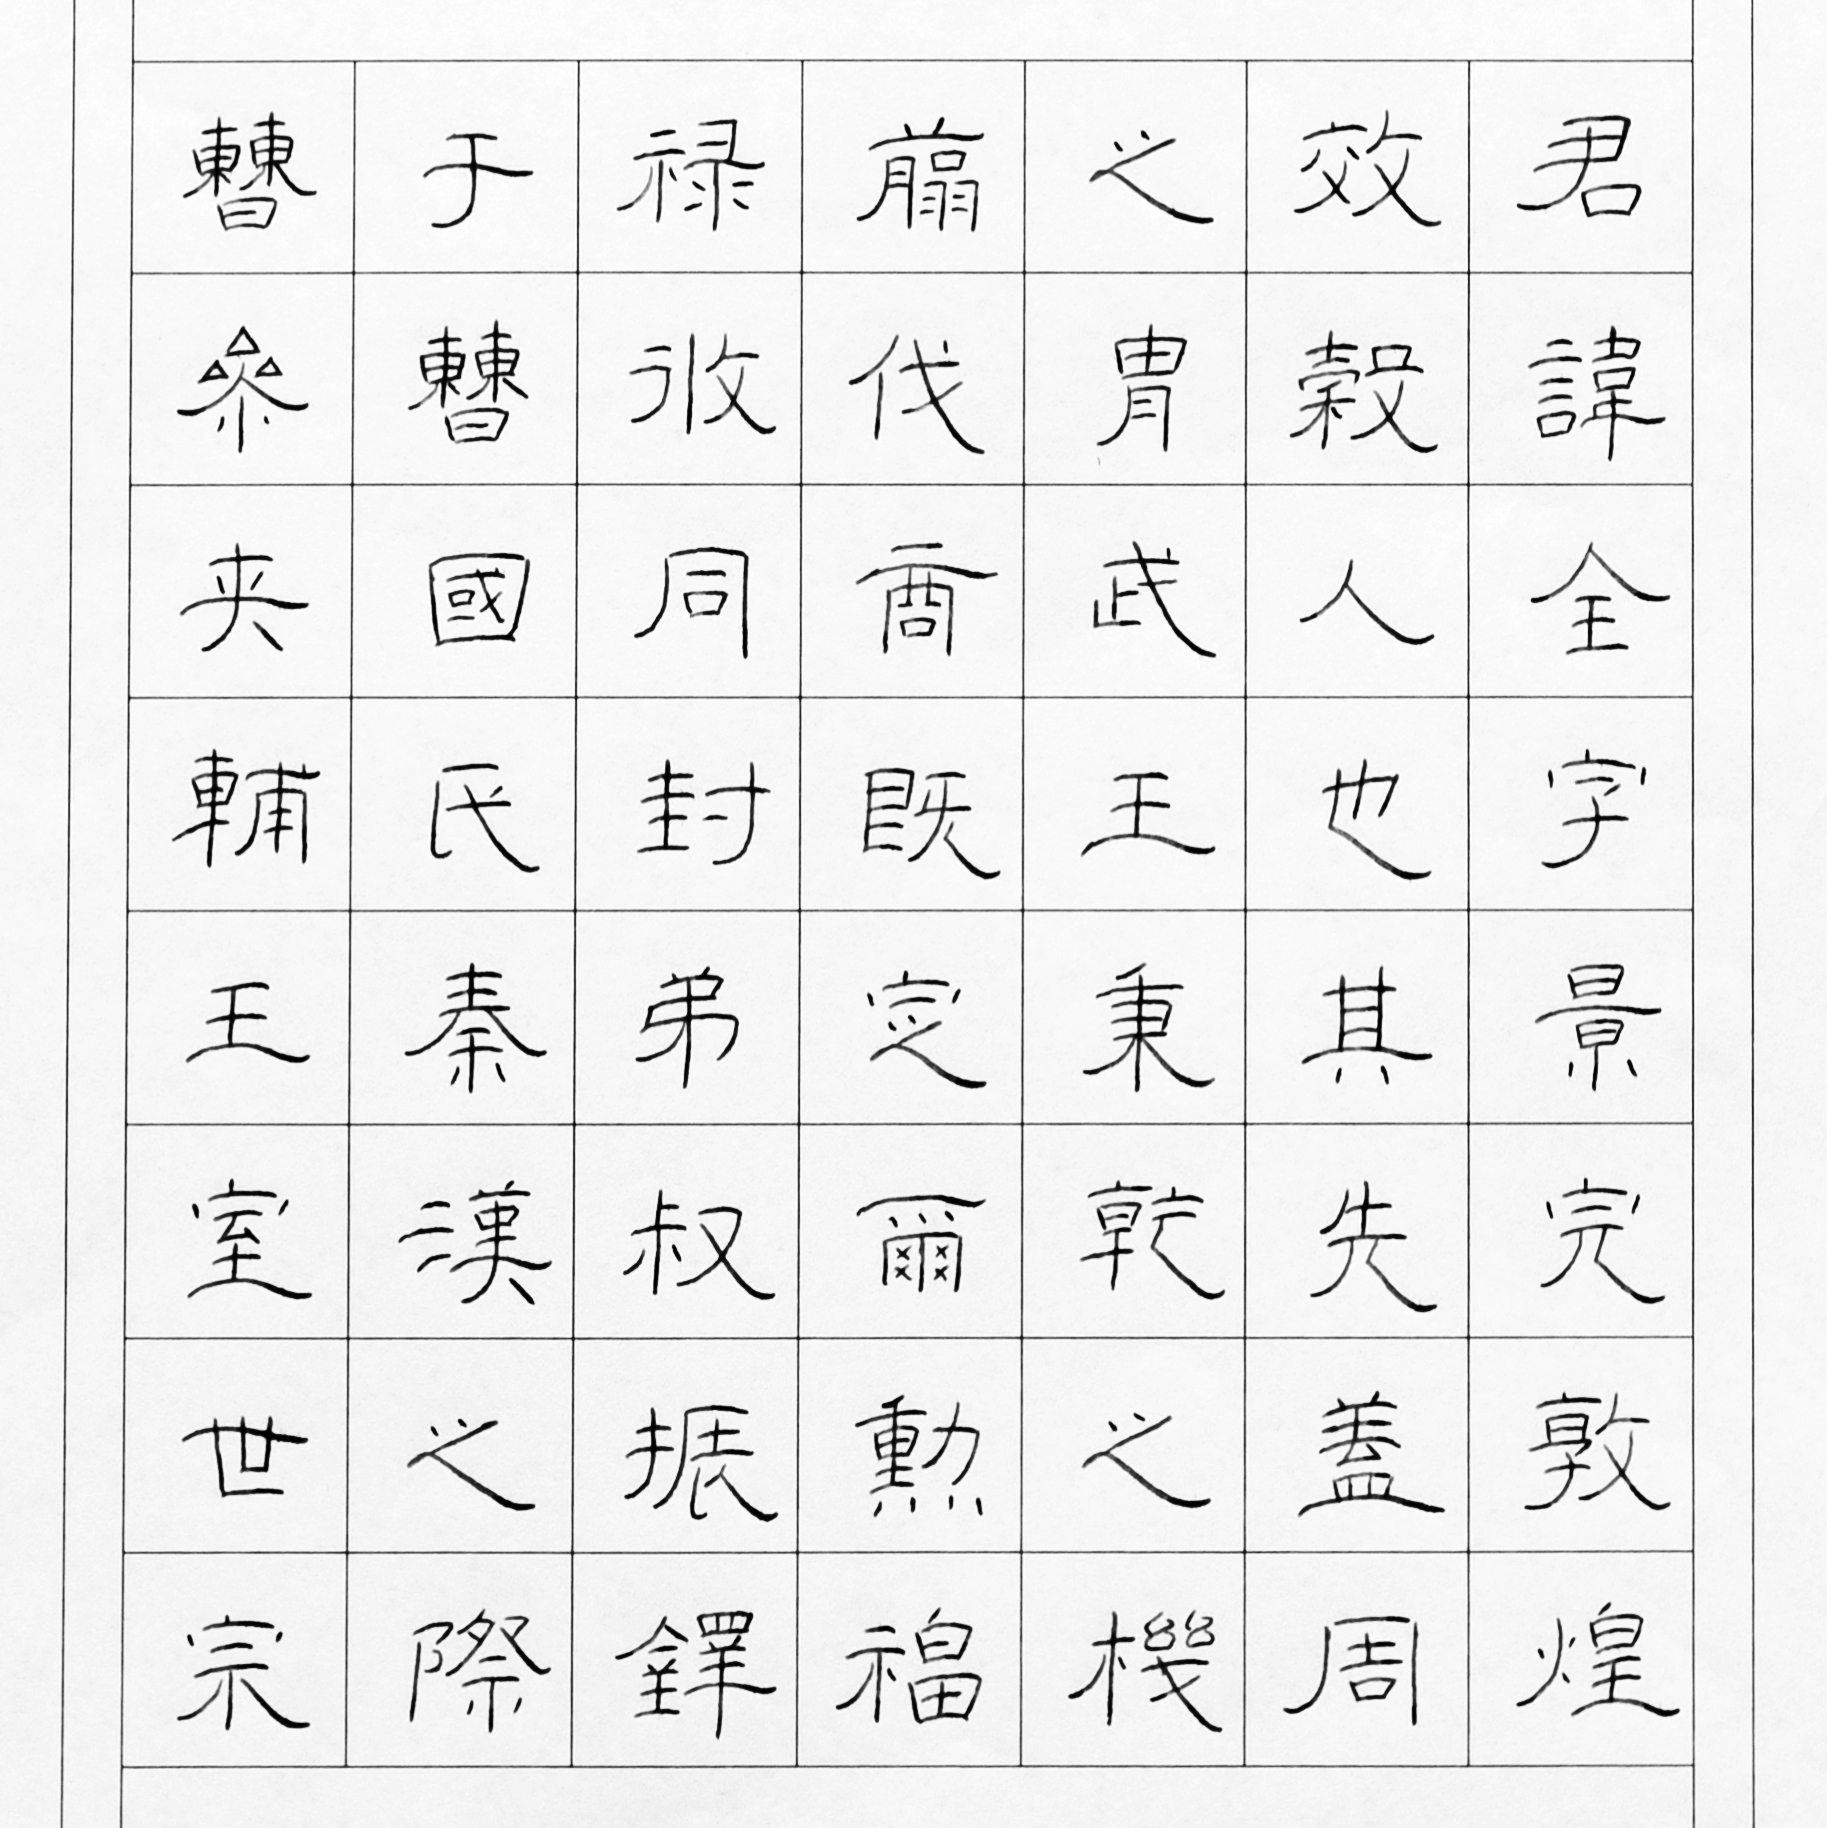 君諱全字景完敦煌
效穀人也其先蓋周
之胄武王秉乾之機
翦伐商既定爾勳福
禄攸同封弟叔振鐸
于曹國氏秦漢之際
曹參夾輔王室世宗